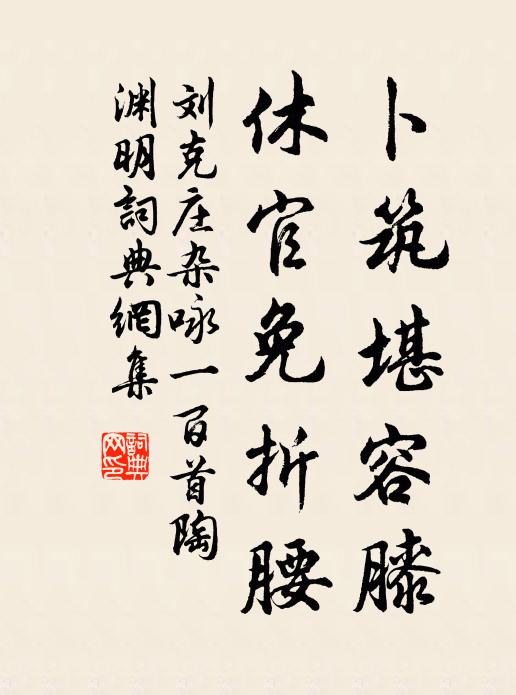 卜筑堪容膝
休官免折腰
刘克庄杂咏一百首陶
渊明詞典網集
詞典
网印